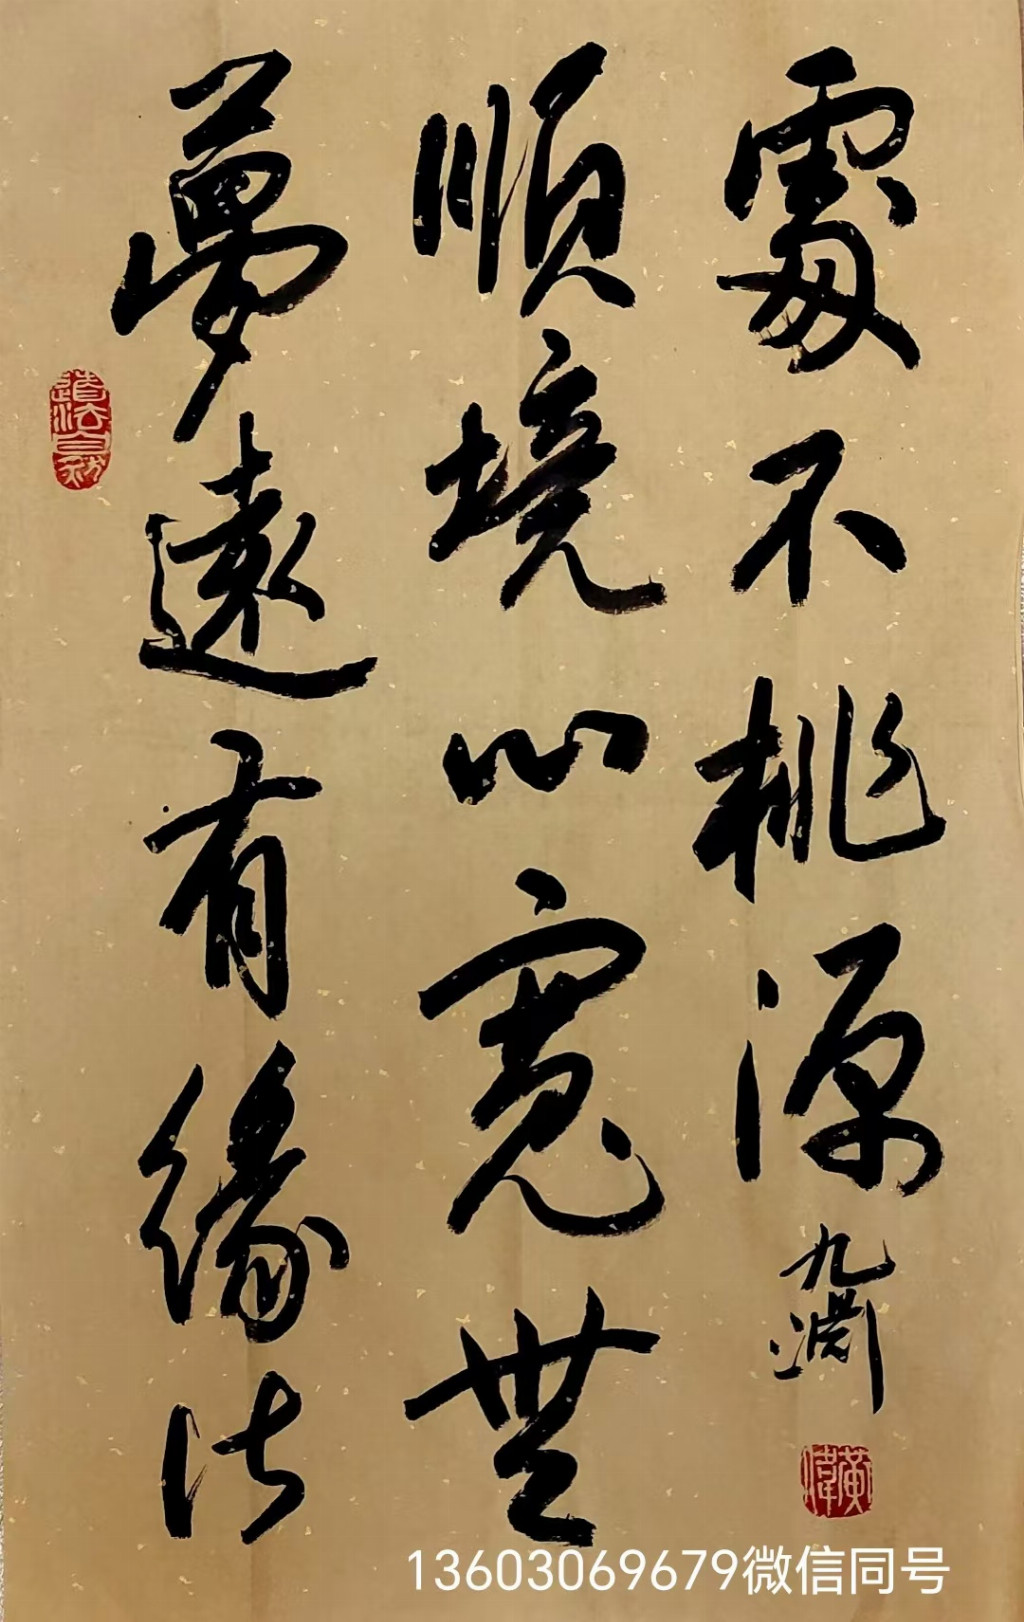 道法自然
夢遠有緣
順境心寬無
處不桃源
九淵
黃偉
13603069679微信同号